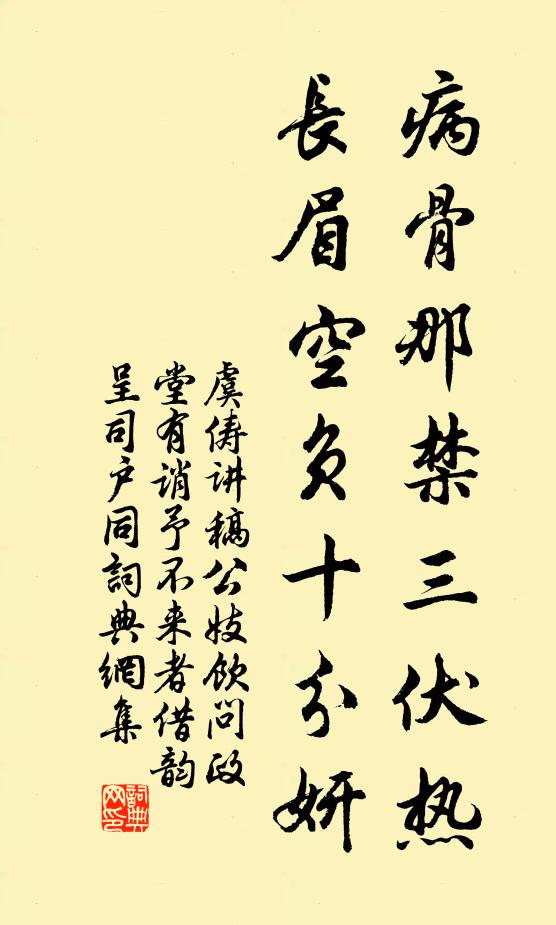 病骨那禁三伏热
長眉空負十分妍
虞俦讲稿公妓饮问政
堂有诮予不来者借韵
呈司户同詞典網集
詞典
网印